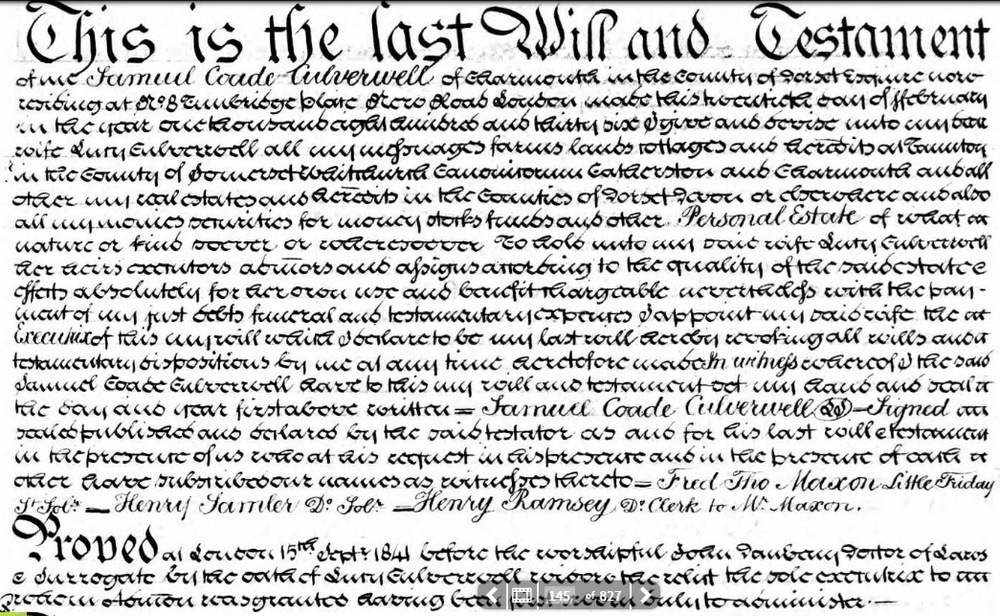 This is the last Will and Testament
of me Samuel Coade Culverwell of Charmouth in the County of Dorset Esquire now
residing at No 8 Tunbridge place New Road London made this twentieth day of ffebruary
in the year one thousand eight hundred and thirty six I give and devise unto my dear
wife Lucy Culverwell all my messuages farms lands cottages and heredits at Taunton
in the County of Somerset Whitchurch Canonicorum Catherston and Charmouth and all
other my real estates and heredits in the Counties of Dorset Devon or elsewhere and also
all my monies securities for money stocks funds and other Personal Estate of what
nature or kind soever or wheresoever To hold unto my said wife Lucy Culverwell
her heirs executors admors and assigns according to the quality of the said estate
effects absolutely for her own use and benefit chargeable nevertheless with the pay-
ment of my just debts funeral and testamentary expences I appoint my said wife the
Executrix of this my will which I declare to be my last will hereby revoking all wills and
testamentary dispositions by me at any time heretofore made In witness whereof I the said
Samuel Coade Culverwell have to this my will and testament set my hand and seal
the day and year first above written = Samuel Coade Culverwell (LS) – Signed
sealed published and declared by the said testator as and for his last will & testament
in the presence of us who at his request in his presence and in the presence of each
other have subscribed our names as witnesses thereto = Fred Tho Maxon Little Friday
St Solr – Henry Samler Do Solr – Henry Ramsey, Do Clerk to Mr Maxon.
Proved at London 15th Sept 1841 before the worshipful John Daubeny Doctor of Laws
& Surrogate by the oath of Lucy Culverwell widow the relict the sole executrix to
whom admon was granted having been duly to administer –
145 of 827